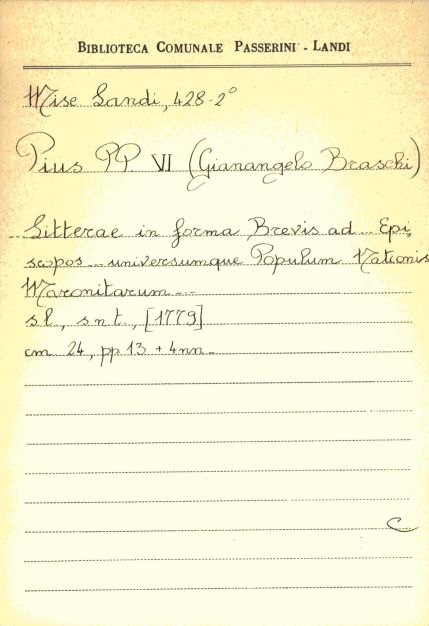 BIBLIOTECA COMUNALE PASSERINI - LANDI
Misc Landi, 428-2°
Pius PP. VI (Gianangelo Braschi)
Litterae in forma Brevis ad... Epi
scopos... universumque Populum Nationis
Maronitarum...
s.l., s.n.t., [1779]
cm. 24, pp 13 + 4nn.
C